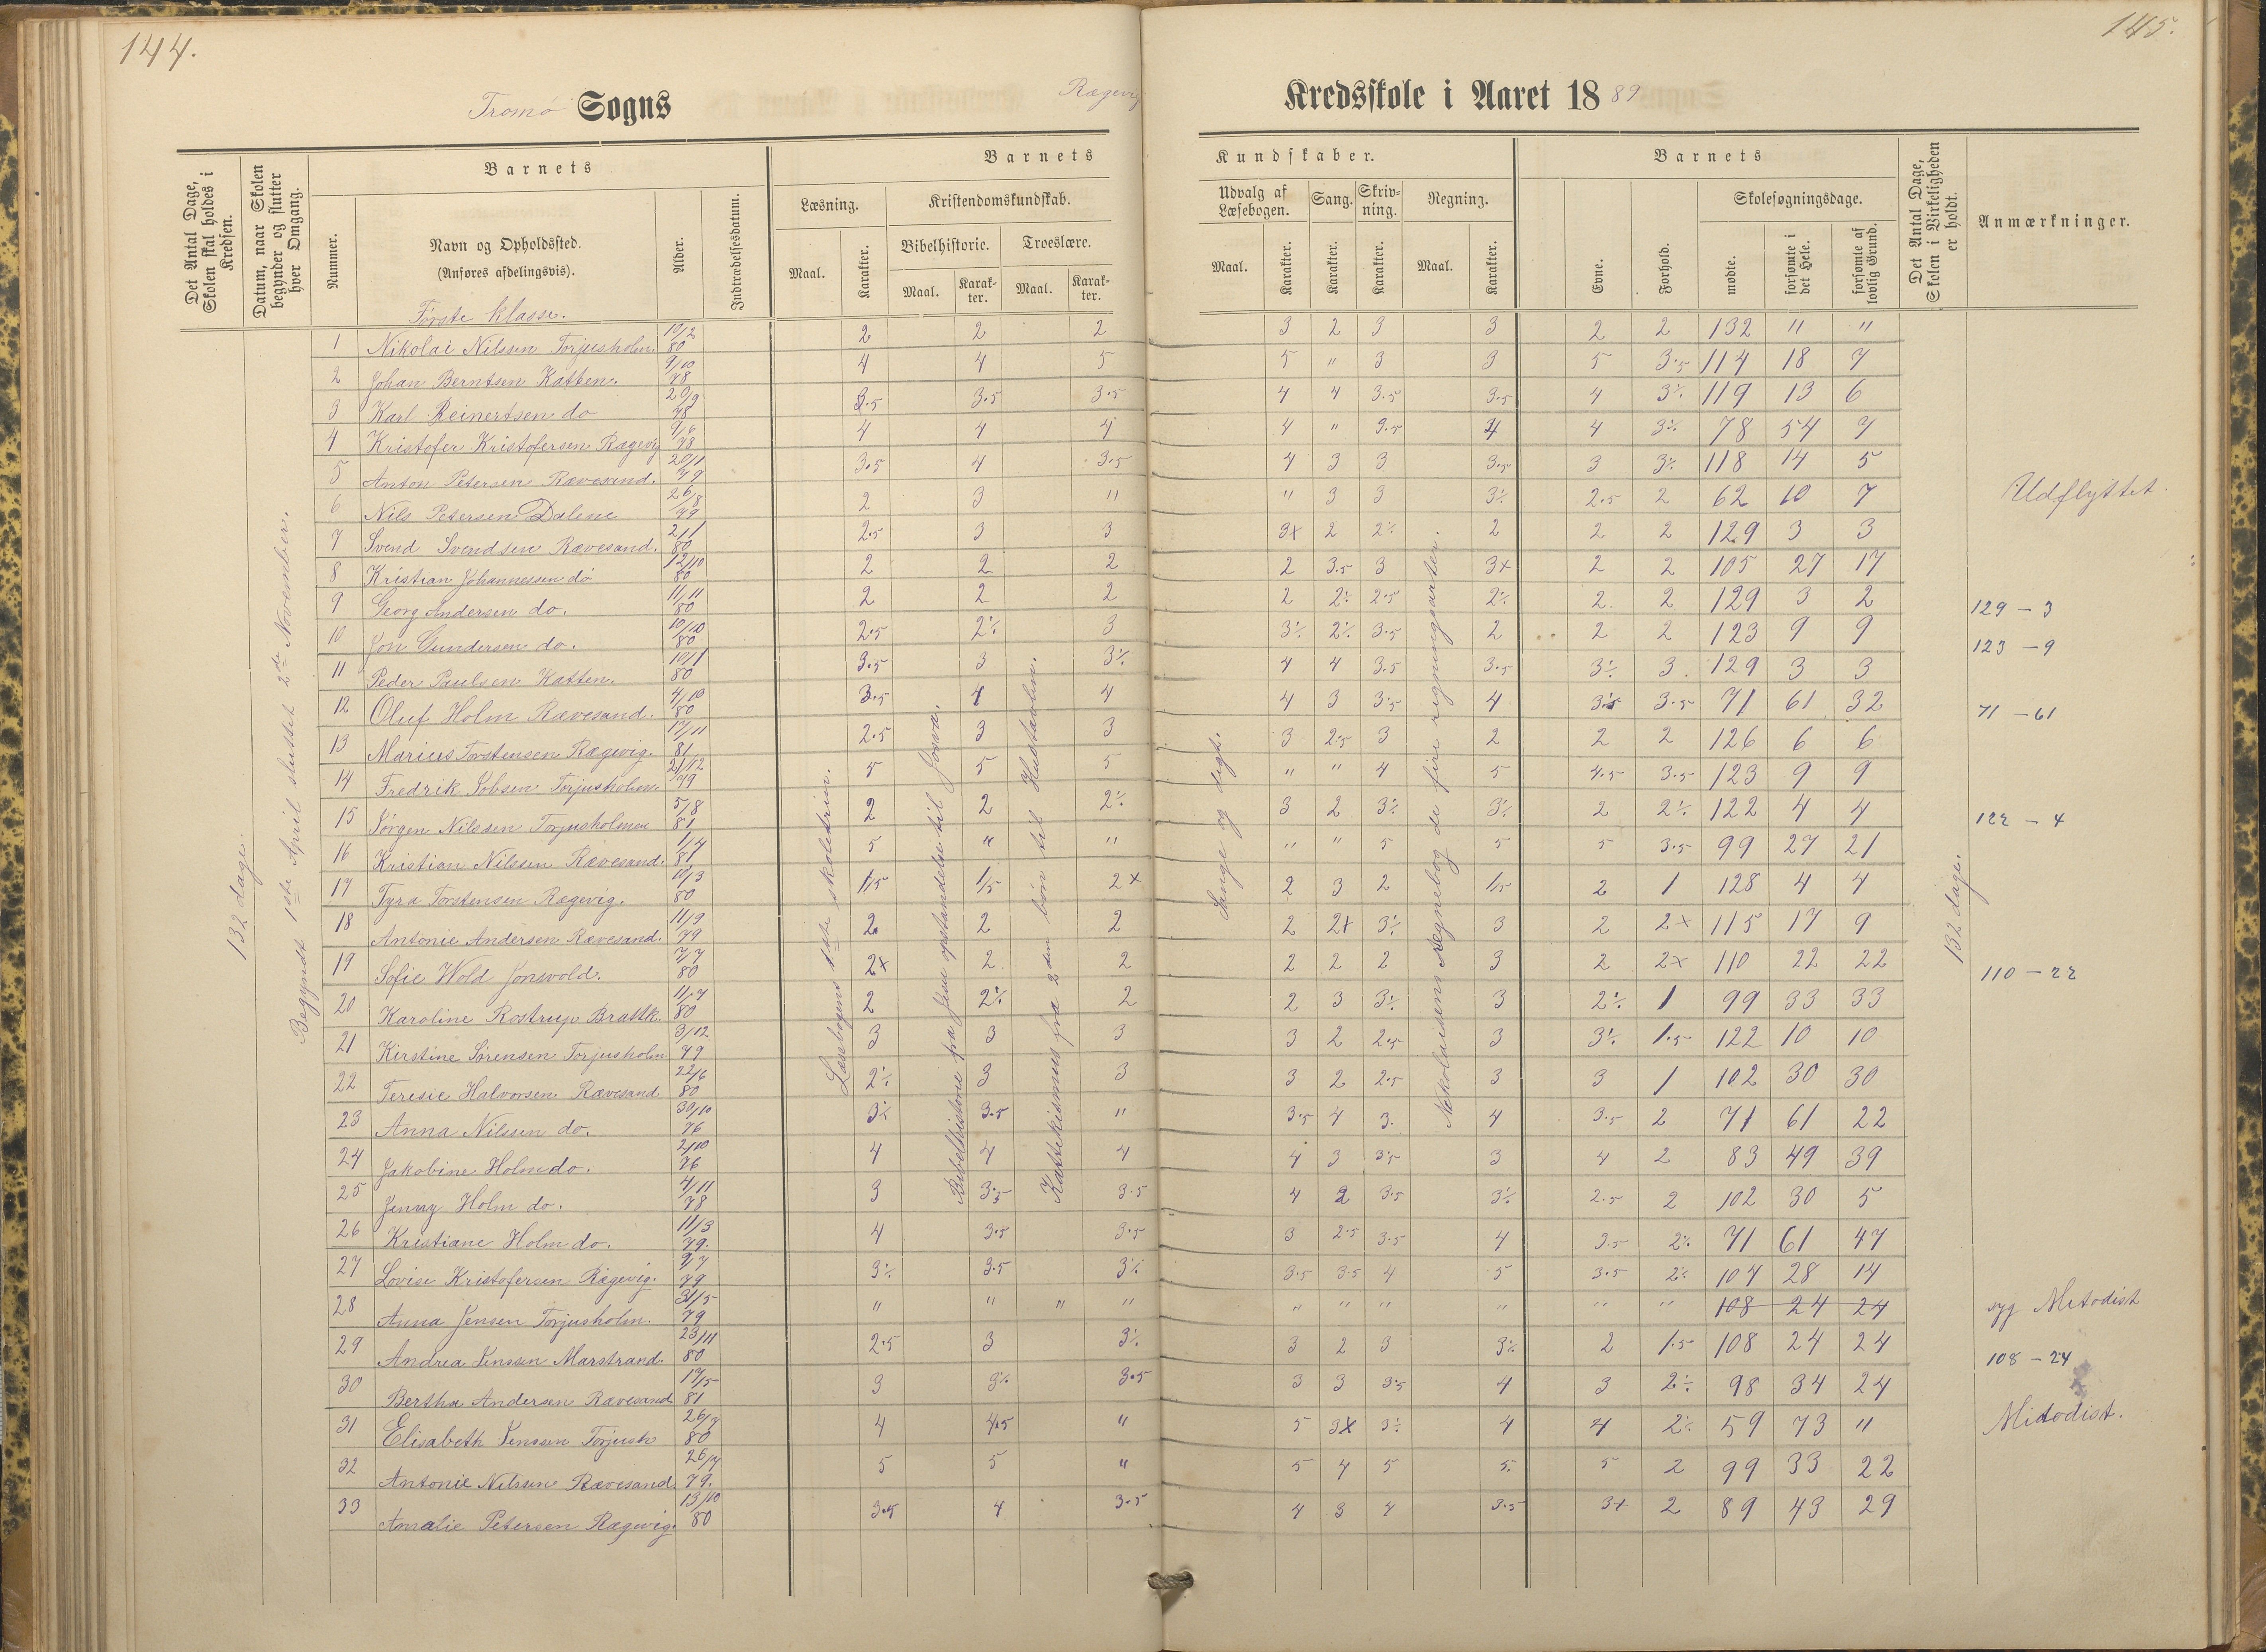 144.
145.
Tromø Sogns
Rægevig
Kredsskole i Aaret 1889
Det Antal Dage, Skolen skal holdes i Kredsen.
Datum, naar Skolen begynder og slutter hver Omgang.
Barnets
Nummer.
Navn og Opholdssted.
(Anføres afdelingsvis).
Alder.
Indtrædelsesdatum.
Barnets Kundskaber.
Læsning.
Maal. Karakter.
Kristendomskundskab.
Bibelhistorie. Troeslære.
Maal. Karakter. Maal. Karakter.
Udvalg af Læsebogen. Sang. Skrivning. Regning.
Maal. Karakter. Karakter. Karakter. Maal. Karakter.
Barnets
Evne. Forhold.
Skolesøgningsdage.
mødte. forsømte i det Hele. forsømte af lovlig Grund.
Det Antal Dage, Skolen i Virkeligheden er holdt.
Anmærkninger.
Første klasse.
132 dage.
Begyndt 1ste April sluttet 2de November.
Læsebogens 1ste skoletrin.
Bibelhistorie fra Jesu opstandelse til Josva.
Kattekismus fra 2den bøn til Hustavlen.
Sange og digt.
Nikolaisens Regnebog de fire regningsarter.
132 dage.
1 Nikolai Nilssen Torjusholm. 10/2 80 2 2 2 3 2 3 3 2 2 132 " "
2 Johan Berntsen Katten. 9/10 78 4 4 5 5 " 3 3 5 3.5 114 18 7
3 Karl Reinertsen do 20/9 78 3.5 3.5 3.5 4 4 3.5 3.5 4 3÷ 119 13 6
4 Kristofer Kristofersen Rægevig 9/6 78 4 4 4 4 " 3.5 4 4 3÷ 78 54 7
5 Anton Petersen Rævesand. 20/11 79 3.5 4 3.5 4 3 3 3.5 3 3÷ 118 14 5
6 Nils Petersen Dalene 26/8 79 2 3 " " 3 3 3÷ 2.5 2 62 10 7 Udflyttet.
7 Svend Svendsen Rævesand. 2/1 80 2.5 3 3 3+ 2 2÷ 2 2 2 129 3 3
8 Kristian Johannessen do 12/10 80 2 2 2 2 3.5 3 3+ 2 2 105 27 17
9 Georg Andersen do. 11/11 80 2 2 2 2 2÷ 2.5 2÷ 2 2 129 3 2 129 – 3
10 Jon Gundersen do. 10/10 80 2.5 2÷ 3 3÷ 2÷ 3.5 2 2 2 123 9 9 123 – 9
11 Peder Paulsen Katten. 10/1 80 3.5 3 3÷ 4 4 3.5 3.5 3÷ 3 129 3 3
12 Oluf Holm Rævesand. 4/10 80 3.5 4 4 4 3 3.5 4 3.5 3.5 71 61 32 71 – 61
13 Marius Torstensen Rægevig. 17/11 81 2.5 3 3 3 2.5 3 2 2 2 126 6 6
14 Fredrik Jobsen Torjusholm 21/12 79 5 5 5 " " 4 5 4.5 3.5 123 9 9
15 Jørgen Nilssen Torjusholmen 5/8 81 2 2 2÷ 3 2 3÷ 3÷ 2 2÷ 122 4 4 122 – 4
16 Kristian Nilssen Rævesand. 1/4 81 5 " " " " 5 5 5 3.5 99 27 21
17 Tyra Torstensen Rægevig. 11/3 80 1.5 1.5 2+ 2 3 2 1.5 2 1 128 4 4
18 Antonie Andersen Rævesand. 11/9 79 2 2 2 2 2+ 3÷ 3 2 2+ 115 17 9
19 Sofie Wold Jonsvold. 7/7 80 2+ 2 2 2 2 2 3 2 2+ 110 22 22 110 – 22
20 Karoline Rostrup Brattk. 11/7 80 2 2÷ 2 2 3 3÷ 3 2÷ 1 99 33 33
21 Kirstine Sørensen Torjusholm. 3/12 79 3 3 3 3 2 2.5 3 3÷ 1.5 122 10 10
22 Teresie Halvorsen Rævesand 22/6 80 2÷ 3 3 3 2 2.5 3 3 1 102 30 30
23 Anna Nilssen do. 30/10 76 3÷ 3.5 " 3.5 4 3. 4 3.5 2 71 61 22
24 Jakobine Holm do. 2/10 76 4 4 4 4 3 3.5 3 4 2 83 49 39
25 Jenny Holm do. 4/11 78 3 3.5 3.5 4 2 3.5 3÷ 2.5 2 102 30 5
26 Kristiane Holm do. 11/3 79. 4 3.5 3.5 3 2.5 3.5 4 3.5 2÷ 71 61 47
27 Lovise Kristofersen Rægevig. 9/7 79 3÷ 3.5 3÷ 3.5 3.5 4 5 3.5 2÷ 104 28 14
28 Anna Jensen Torjusholm. 31/5 79 " " " " " " " " " " 108 24 24 syg Metodist
29 Andrea Jenssen Marstrand. 23/11 80 2.5 3 3÷ 3 2 3 3÷ 2 1.5 108 24 24 108 – 24
30 Bertha Andersen Rævesand 17/5 81 3 3÷ 3.5 3 3 3.5 4 3 2÷ 98 34 24
31 Elisabeth Jenssen Torjush 26/7 80 4 4.5 " 5 3+ 3÷ 4 4 2÷ 59 73 " Mitodist.
32 Antonie Nilssen Rævesand. 26/7 79. 5 5 " 5 4 5 5. 5 2 99 33 22
33 Amalie Petersen Rægevig. 13/10 80 3.5 4 3.5 4 3 4 3.5 3+ 2 89 43 29